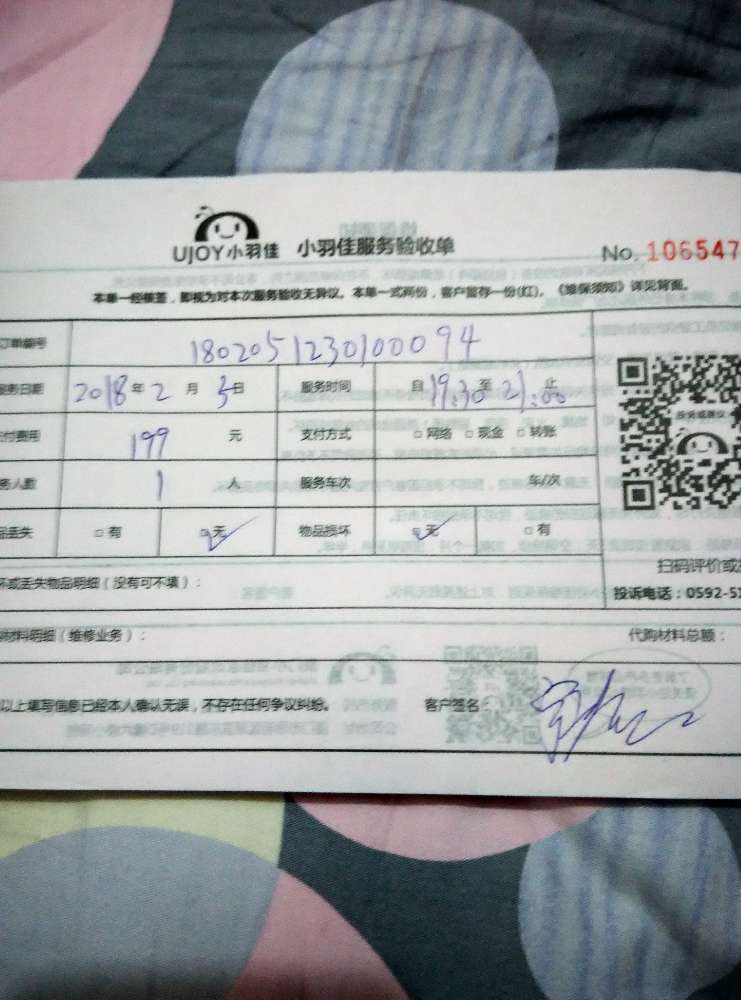 UJOY小羽佳 小羽佳服务验收单 No. 106547
本单一经核签，即视为对本次服务验收无异议。本单一式两份，客户留存一份(红)。《维保须知》详见背面。
订单编号 180205123010094
服务日期 2018年2月5日 服务时间 自19:30至21:00止
付费用 199元 支付方式 □网络 □现金 □转账
务人数 1人 服务车次 车/次
品丢失 □有 □无 物品损坏 □无 □有
扫码评价或
坏或丢失物品明细（没有可不填）： 投诉电话：0592-51
材料明细（维修业务）： 代购材料总额：
以上填写信息已经本人确认无误，不存在任何争议纠纷。 客户签名：